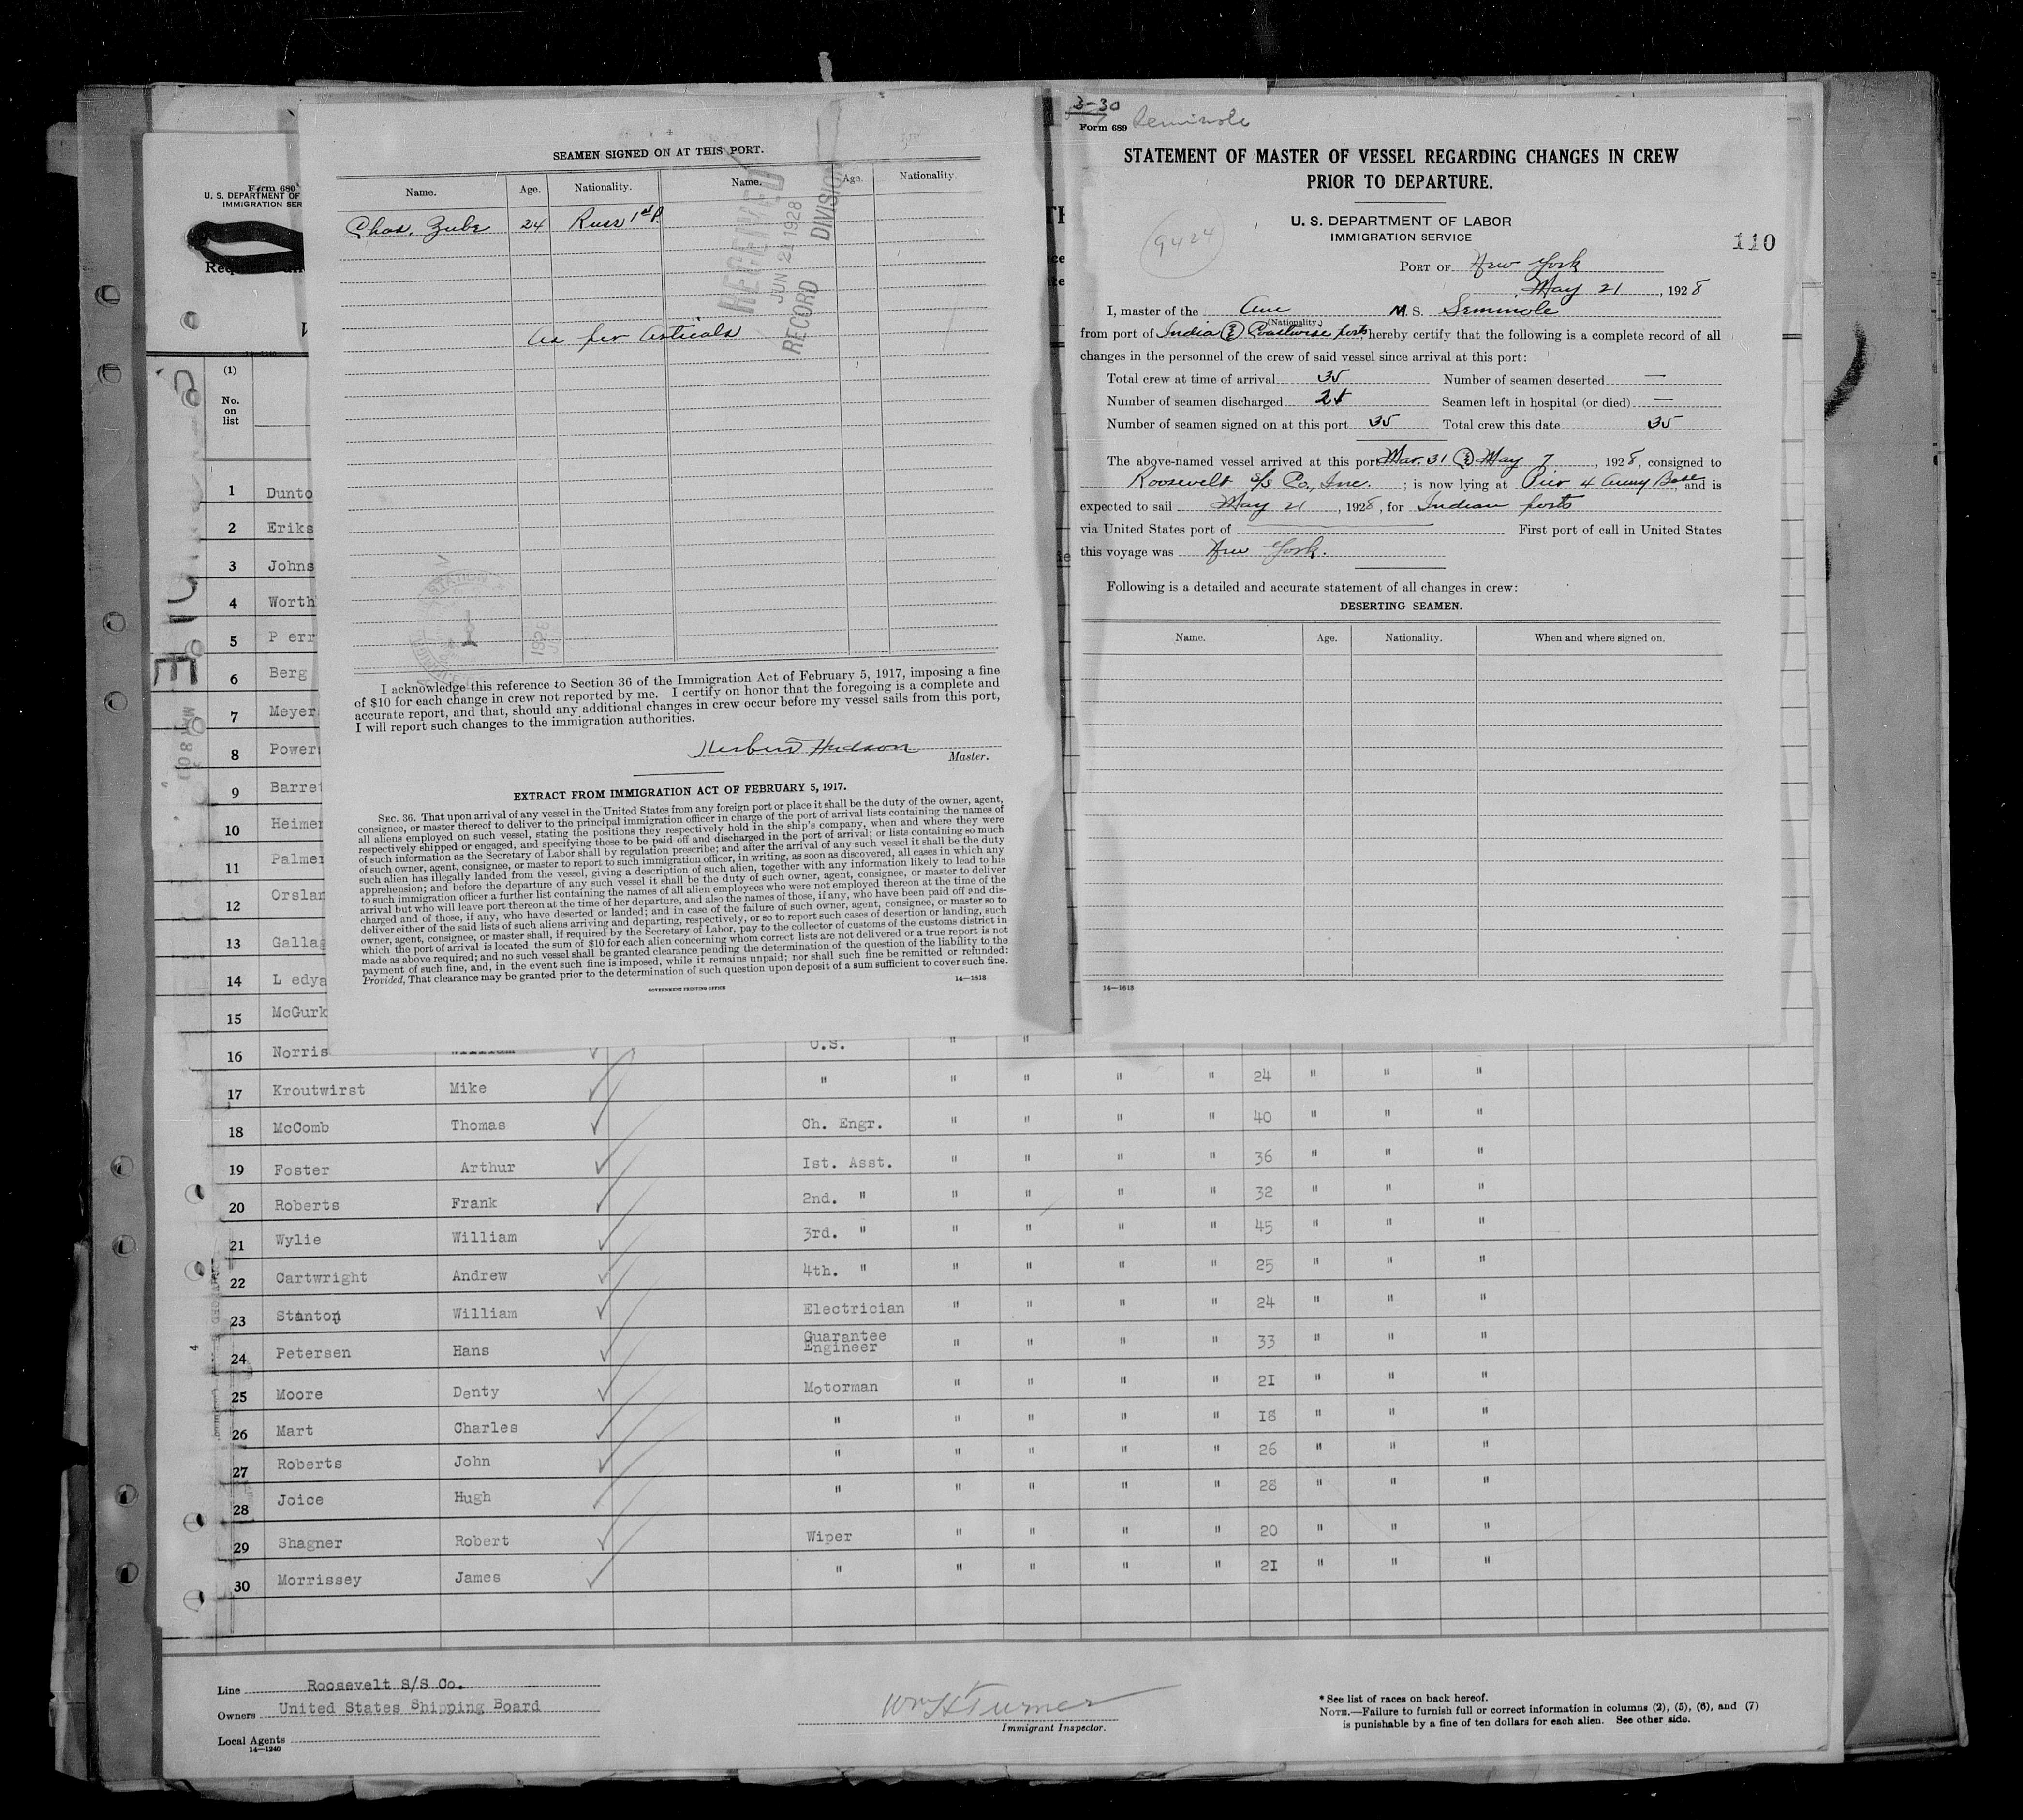 SEAMEN SIGNED ON AT THIS PORT.
Name. Age. Nationality. Name. Age. Nationality.
Chas. Zube 24 Russ 1st P.
As per Articals
RECEIVED
JUN 21 1928
RECORD DIVISION
I acknowledge this reference to Section 36 of the Immigration Act of February 5, 1917, imposing a fine
of $10 for each change in crew not reported by me. I certify on honor that the foregoing is a complete and
accurate report, and that, should any additional changes in crew occur before my vessel sails from this port,
I will report such changes to the immigration authorities.
Herbert Hudson
Master.
EXTRACT FROM IMMIGRATION ACT OF FEBRUARY 5, 1917.
SEC. 36. That upon arrival of any vessel in the United States from any foreign port or place it shall be the duty of the owner, agent,
consignee, or master thereof to deliver to the principal immigration officer in charge of the port of arrival lists containing the names of
all aliens employed on such vessel, stating the positions they respectively hold in the ship's company, when and where they were
respectively shipped or engaged, and specifying those to be paid off and discharged in the port of arrival; or lists containing so much
of such information as the Secretary of Labor shall by regulation prescribe; and after the arrival of any such vessel it shall be the duty
of such owner, agent, consignee, or master to report to such immigration officer, in writing, as soon as discovered, all cases in which any
such alien has illegally landed from the vessel, giving a description of such alien, together with any information likely to lead to his
apprehension; and before the departure of any such vessel it shall be the duty of such owner, agent, consignee, or master to deliver
to such immigration officer a further list containing the names of all alien employees who were not employed thereon at the time of the
arrival but who will leave port thereon at the time of her departure, and also the names of those, if any, who have been paid off and dis-
charged and of those, if any, who have deserted or landed; and in case of the failure of such owner, agent, consignee, or master so to
deliver either of the said lists of such aliens arriving and departing, respectively, or so to report such cases of desertion or landing, such
owner, agent, consignee, or master shall, if required by the Secretary of Labor, pay to the collector of customs of the customs district in
which the port of arrival is located the sum of $10 for each alien concerning whom correct lists are not delivered or a true report is not
made as above required; and no such vessel shall be granted clearance pending the determination of the question of the liability to the
payment of such fine, and, in the event such fine is imposed, while it remains unpaid; nor shall such fine be remitted or refunded:
Provided, That clearance may be granted prior to the determination of such question upon deposit of a sum sufficient to cover such fine.
GOVERNMENT PRINTING OFFICE 14—1618
3-30
Form 689 Seminole
STATEMENT OF MASTER OF VESSEL REGARDING CHANGES IN CREW
PRIOR TO DEPARTURE.
U. S. DEPARTMENT OF LABOR
IMMIGRATION SERVICE
9424
110
PORT OF New York
May 21, 1928
I, master of the Am M. S. Seminole
(Nationality.)
from port of India & Coastwise ports, hereby certify that the following is a complete record of all
changes in the personnel of the crew of said vessel since arrival at this port:
Total crew at time of arrival 35 Number of seamen deserted —
Number of seamen discharged Seamen left in hospital (or died) —
Number of seamen signed on at this port 35 Total crew this date 35
The above-named vessel arrived at this port Mar. 31 & May 7, 1928, consigned to
Roosevelt S/S Co., Inc. ; is now lying at Pier 4 Army Base, and is
expected to sail May 21, 1928, for Indian ports
via United States port of First port of call in United States
this voyage was New York.
Following is a detailed and accurate statement of all changes in crew:
DESERTING SEAMEN.
Name. Age. Nationality. When and where signed on.
14—1618
Form 680
U. S. DEPARTMENT OF
IMMIGRATION SER
(1)
No.
on
list
1 Dunto
2 Eriks
3 Johns
4 Worth
5 P err
6 Berg
7 Meyer
8 Power
9 Barre
10 Heimer
11 Palmer
12 Orslan
13 Gallag
14 L edya
15 McGurk
16 Norris William U.S. " "
17 Kroutwirst Mike " " " " " 24 " " "
18 McComb Thomas Ch. Engr. " " " " 40 " " "
19 Foster Arthur Ist. Asst. " " " " 36 " " "
20 Roberts Frank 2nd. " " " " " 32 " " "
21 Wylie William 3rd. " " " " " 45 " " "
22 Cartwright Andrew 4th. " " " " " 25 " " "
23 Stanton William Electrician " " " " 24 " " "
24 Petersen Hans Guarantee Engineer " " " " 33 " " "
25 Moore Denty Motorman " " " " 2I " " "
26 Mart Charles " " " " " I8 " " "
27 Roberts John " " " " " 26 " " "
28 Joice Hugh " " " " " 28 " " "
29 Shagner Robert Wiper " " " " 20 " " "
30 Morrissey James " " " " " 2I " " "
Line Roosevelt S/S Co.
Owners United States Shipping Board
Local Agents
14—1240
Wm H Turner
Immigrant Inspector.
* See list of races on back hereof.
NOTE.—Failure to furnish full or correct information in columns (2), (5), (6), and (7)
is punishable by a fine of ten dollars for each alien. See other side.